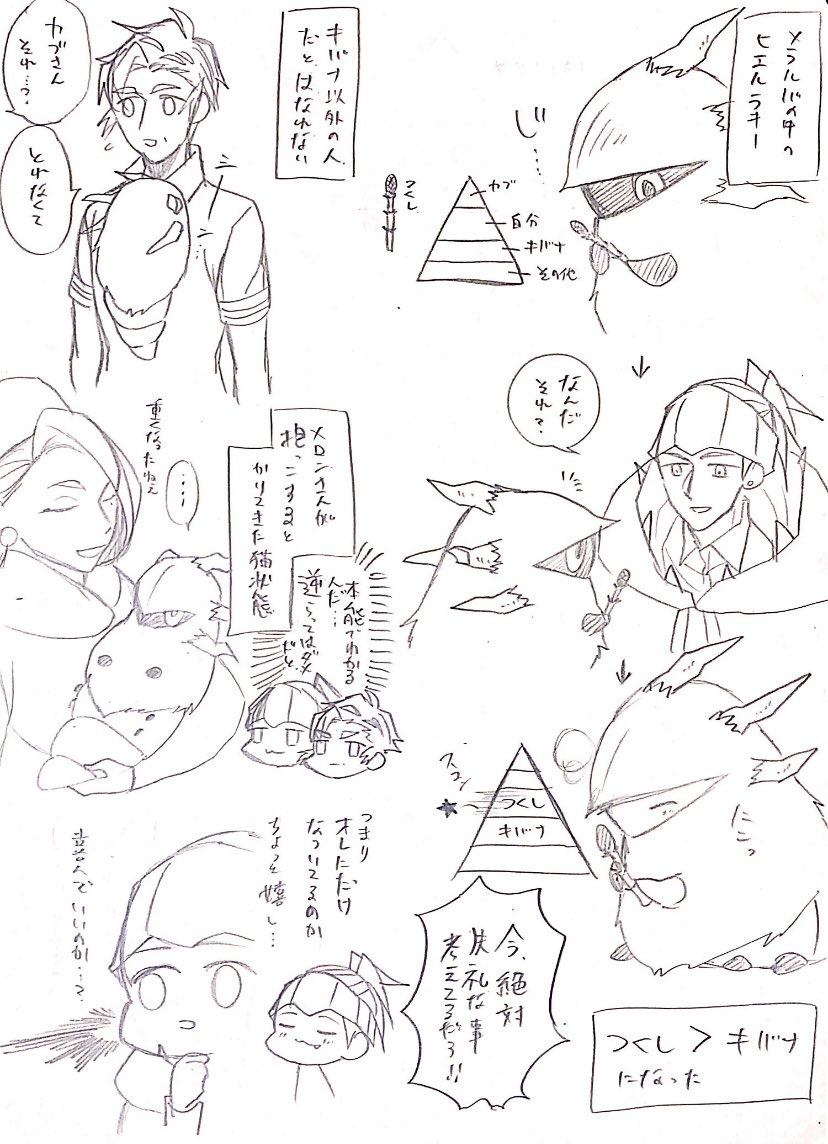 メラルバの中の
ヒエルラキー
じ…
つくし
カブ
自分
キバナ
その他
なんだ
それ?
にこっ
スコン
つくし
キバナ
今、絶対
失礼な事
考えてるだろ!!
つくし > キバナ
になった
キバナ以外の人
だと、はなれない
カブさん
それ…?
とれなくて
メロンさんが
抱っこすると
かりてきた猫状態
重くなったねぇ
…
本能でわかる
んだ…
逆らってはダメ
だと
つまり
オレにだけ
なついてるのか
ちょっと嬉し…
喜んでいいのか…?